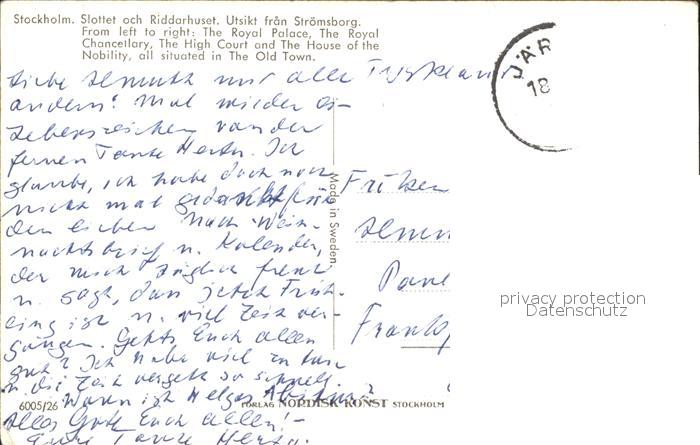 Stockholm. Slottet och Riddarhuset. Utsikt från Strömsborg.
From left to right: The Royal Palace, The Royal
Chancellary, The High Court and The House of the
Nobility, all situated in The Old Town.
JÄR
18
Liebe und alle
andern! Mal wieder ein
Lebenszeichen von der
fernen Tante Herta. Ich
glaube, ich habe doch noch
nicht mal gedankt für
den lieben Nach-Weih-
nachtsbrief u. Kalender,
der mich täglich freut
u. sagt, dass jetzt Früh-
ling ist u. viel Zeit ver-
gangen. Gehts Euch allen
gut? Ich habe viel zu tun
u. die Zeit vergeht so schnell.
Wann ist Helgas
Alles Gute Euch allen!-
Eure Tante Herta.
Made in Sweden
privacy protection
Datenschutz
6005/26
FÖRLAG NORDISK KONST STOCKHOLM